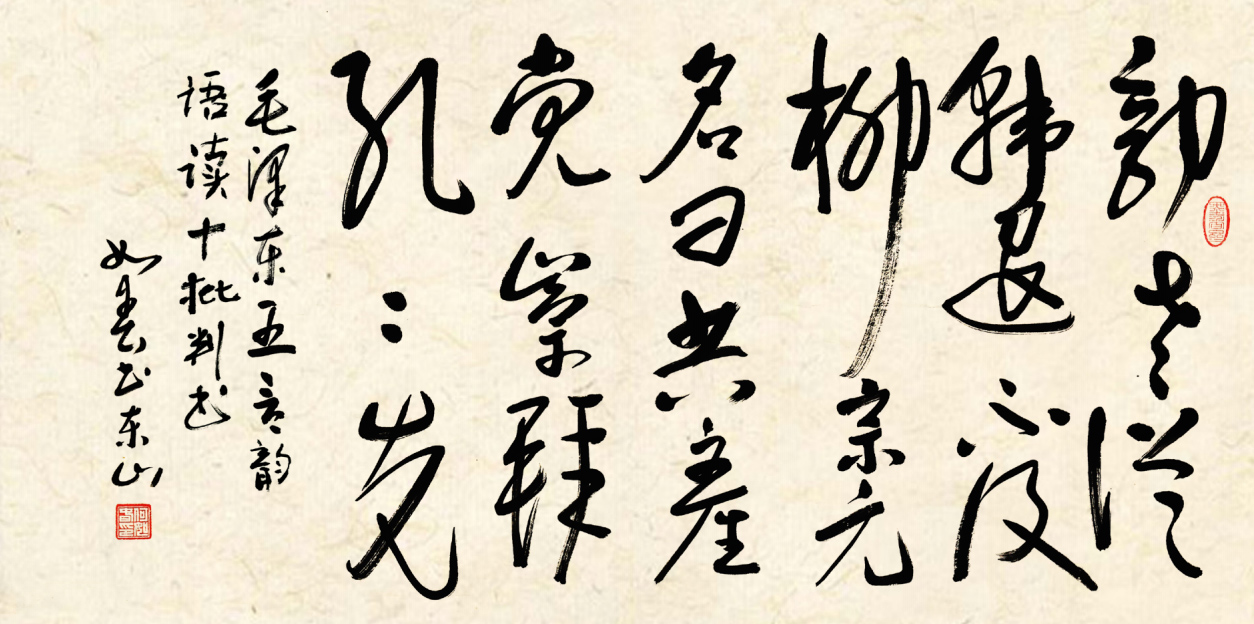 郭老从
韩退不及
柳宗元
名曰共产
党崇拜
孔二先
毛泽东五言韵
语读十批判书
如春书东山